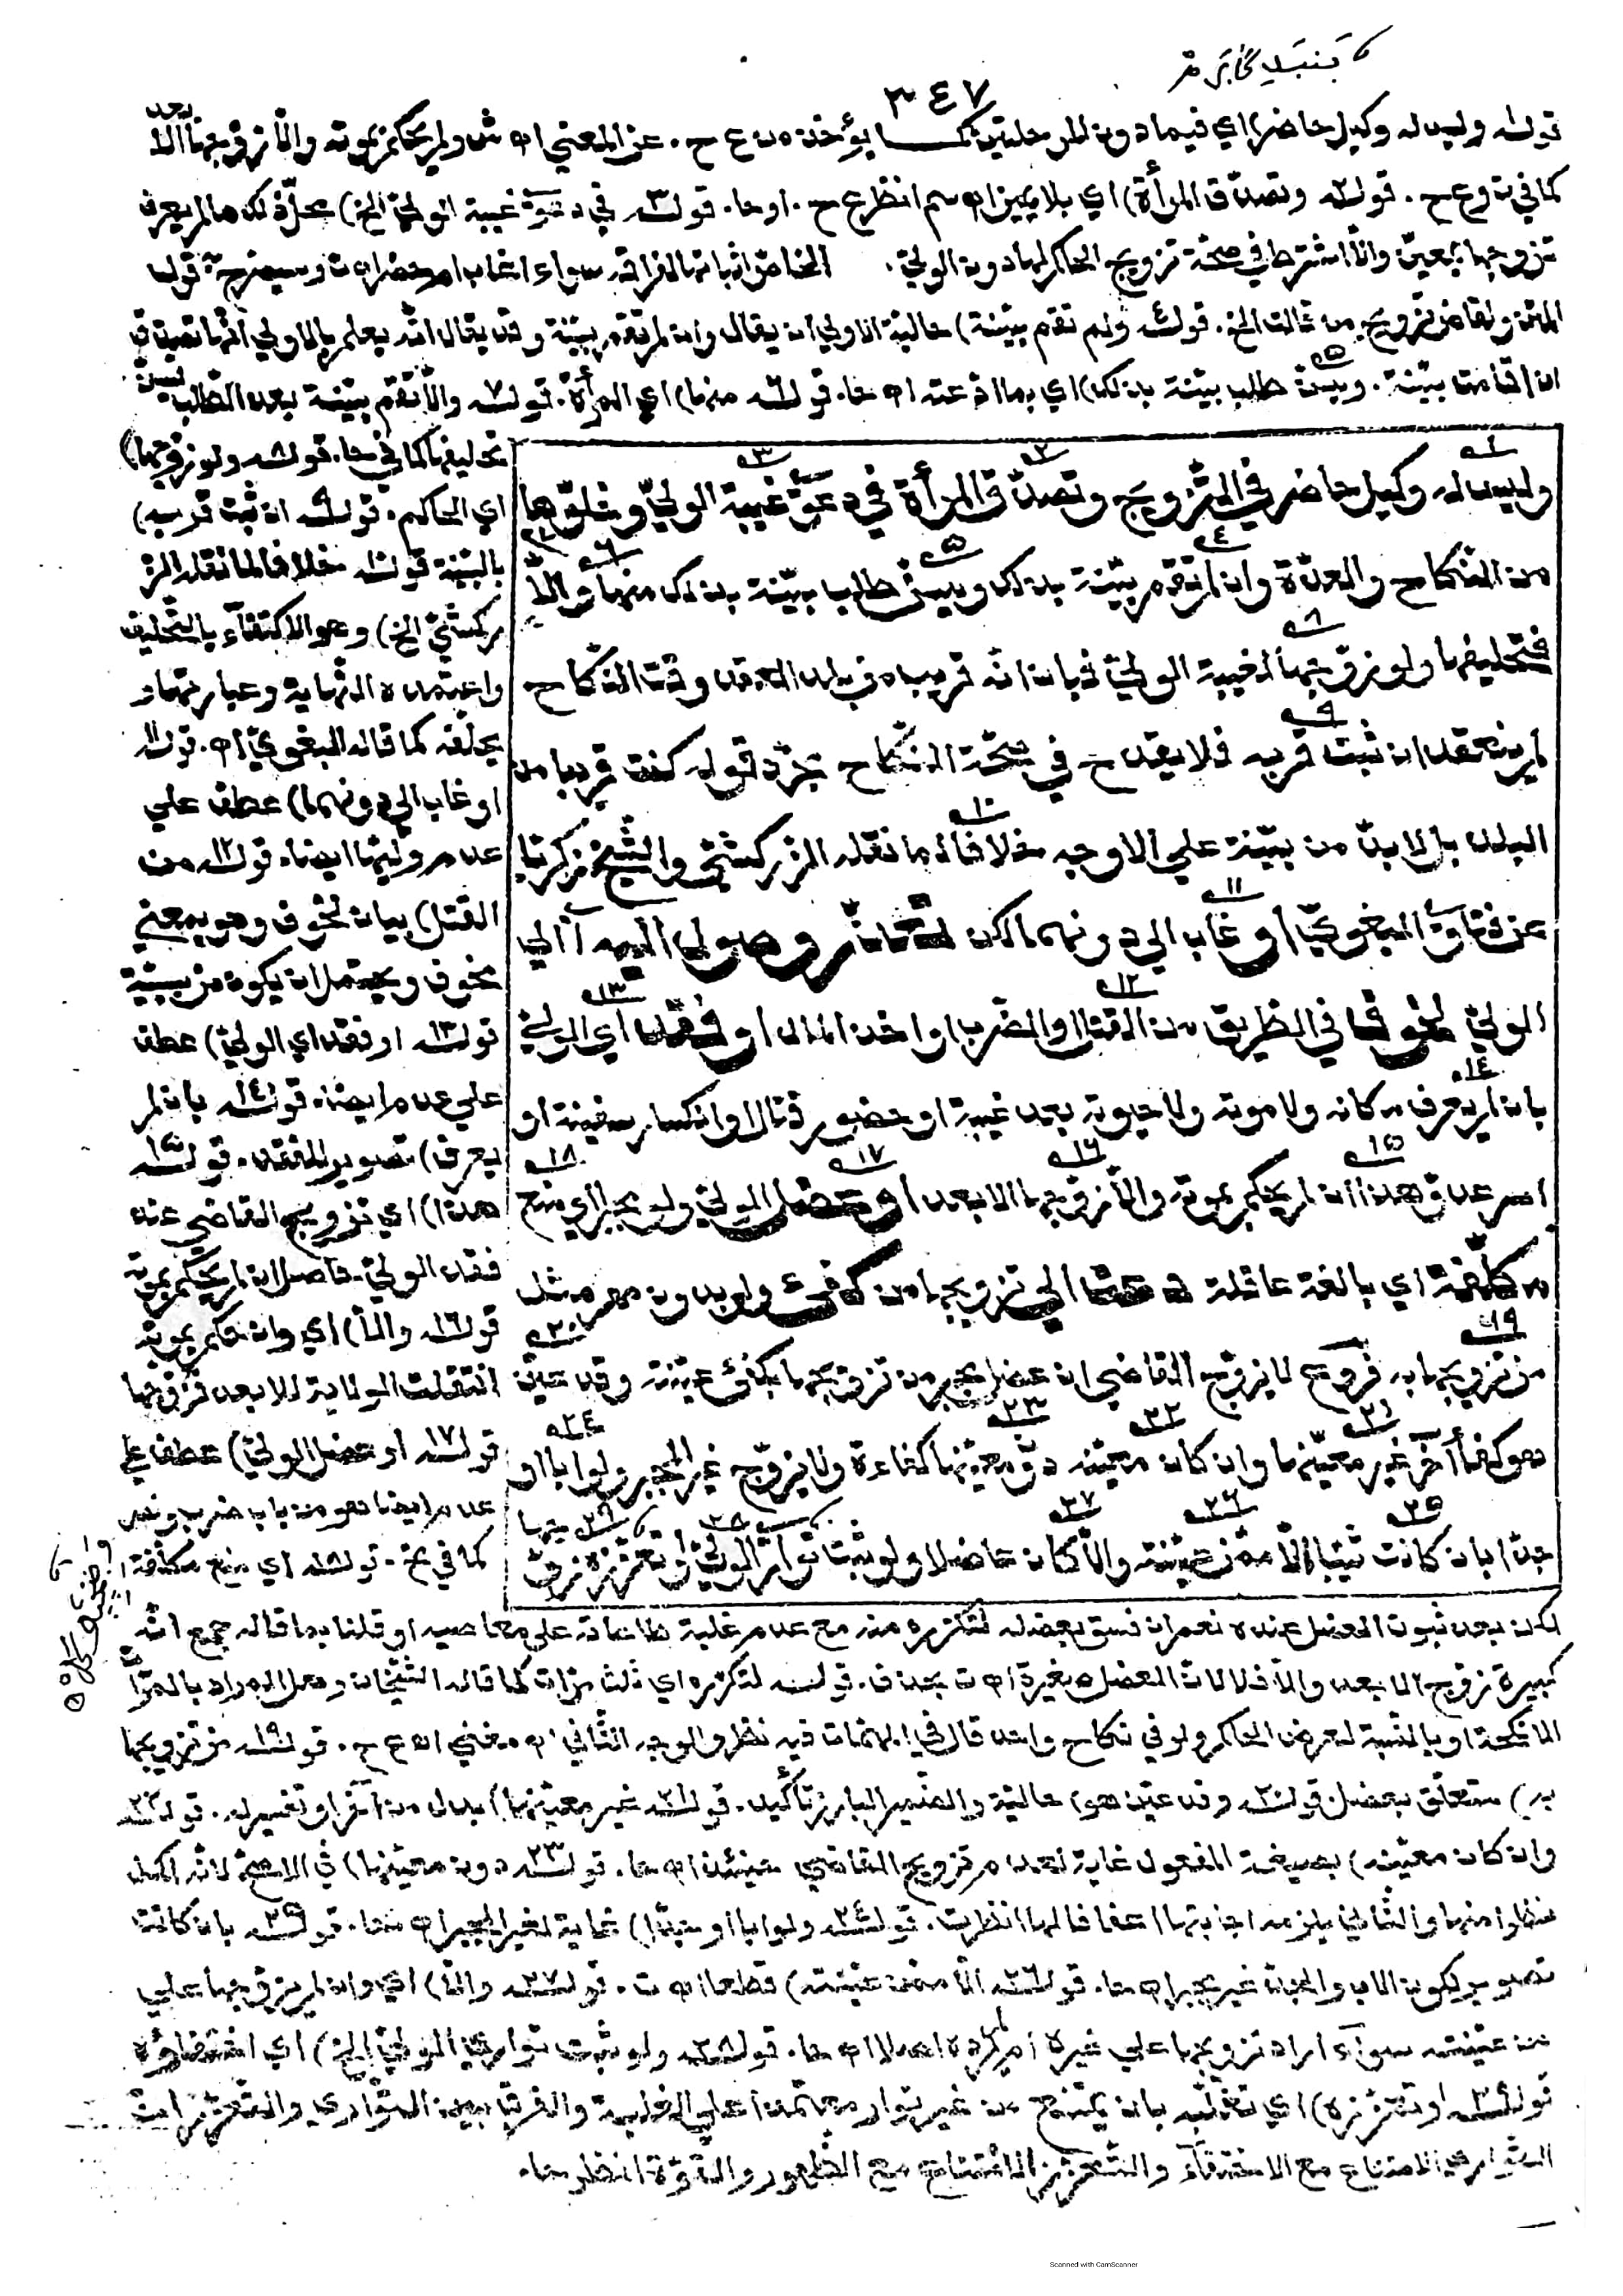 ٣٤٧
قوله وليس له وكيل حاضر) اي فيما دون المرحلتين كما يؤخذ من ع ح . عن المغني اه ش ولم يحكم بموته والا زوجها الابعد
كما في ت وع ح . قوله وتصدق المرأة) اي بلا يمين اه سم انظر ع ح . اوحا . قوله في دعوى غيبة الولي الخ) محل ذلك ما لم يعرف
تزوجها بمعين والا اشترط في صحة تزويج الحاكم لها دون الولي . الخاص اثباتها لفراقه سواء اغاب ام حضر اه ت وسيصرح قول
المتن ولقاض تزويج من قالت الخ . قوله ولم تقم بينة) حالية الاولى ان يقال وان لم تقم بينة وقد يقال انه يعلم بالاولى انها تصدق
ان اقامت بينة . ويسن طلب بينة بذلك) اي بما ادعته اه حا . قوله منها) اي المرأة . قوله والا تقم بينة بعد الطلب يسن
تحليفها كما في حا . قوله ولو زوجها)
اي الحاكم . قوله ان ثبت قربه)
بالبينة قوله خلافا لما نقله الز
ركشي الخ) وهو الاكتفاء بالتحليف
واعتمده النهاية وعبارتهما و
يحلفه كما قاله البغوي اه . قوله
او غاب الى دونهما) عطف على
عدم وليها ايضا . قوله من
القتل) بيان لخوف وهو بمعنى
مخوف ويحتمل ان يكون من سببية
قوله او فقد اي الولي) عطف
على عدم ايضا . قوله بان لم
يعرف) تصوير للفقد . قوله
هذا) اي تزويج القاضي عند
فقد الولي حاصل ان لم يحكم بموته
قوله والا) اي وان حكم بموته
انتقلت الولاية للابعد فزوجها
قوله او عضل الولي) عطف على
عدم ايضا وهو من باب ضرب ونصر
كما في مخ . قوله اي منع مكلفة
وليس له وكيل حاضر في التزويج وتصدق المرأة في دعوى غيبة الولي وخلوها
من النكاح والعدة وان لم تقم بينة بذلك ويسن طلب بينة بذلك منها والا
فتحليفها ولو زوجها لغيبة الولي فبان انه قريب من بلد العقد وقت النكاح
لم ينعقد ان ثبت قربه فلا يقدح في صحة النكاح مجرد قوله كنت قريبا من
البلد بل لا بد من بينة على الاوجه خلافا لما نقله الزركشي والشيخ زكريا
عن فتاوى البغوي او غاب الى دونهما لكن تعذر وصول اليه اي الى
الولي لخوف في الطريق من القتل او الضرب او اخذ المال او فقد اي الولي
بان لم يعرف مكانه ولا موته ولا حيوته بعد غيبة او حضور قتال او انكسار سفينة او
اسر عدو هذا ان لم يحكم بموته والا زوجها الابعد او عضل الولي ولو مجبرا اي منع
مكلفة اي بالغة عاقلة دعت الى تزويجها من كفؤ ولو بدون مهر مثل
من تزويجها به فروع لا يزوج القاضي ان عضل مجبر من تزويجها بكفؤ عينته وقد عين
هو كفأ آخر غير معينها وان كان معينه دون معينها كفاءة ولا يزوج غير المجبر ولو ابا او
جدا بان كانت ثيبا الا ممن عينته والا كان عاضلا ولو ثبت تواري الولي او تعززه زوجها
لكن بعد ثبوت العضل عنده نعم ان فسق بعضله لتكرره منه مع عدم غلبة طاعاته على معاصيه او قلنا بما قاله جمع انه
كبيرة زوج الابعد والا فلا لان العضل صغيرة اه ت بحذف . قوله لتكرره اي ثلث مرات كما قاله الشيخان وهل المراد بالمرات
الانكحة او بالنسبة لعرض الحاكم ولو في نكاح واحد قال في المهمات فيه نظر والاوجه الثاني اه مغني اه ع ح . قوله من تزويجها
به) متعلق بعضل قوله وقد عين هو) حالية والضمير البارز تأكيد . قوله غير معينها) بدل من آخر او تفسير له . قوله
وان كان معينه) بصيغة المفعول غاية لعدم تزويج القاضي حينئذ اه حا . قوله دون معينها) في الاصح لانه اكمل
نظرا منها والثاني يلزمه اجابتها اعفافا لها انظر ت . قوله ولو ابا او جدا) غاية لغير المجبر اه حا . قوله بان كانت
تصوير لكون الاب والجد غير مجبر اه حا . قوله الا ممن عينته) قطعا اه ت . قوله والا) اي وان لم يزوجها على
من عينته سواء اراد تزويجها على غيره ام لم يرده اصلا اه حا . قوله ولو ثبت تواري الولي الخ) اي اختفاؤه
قوله او تعززه) اي تغلبه بان يمتنع من غير توار معتمدا على الغلبة والفرق بين التواري والتعزز ان
التواري الامتناع مع الاختفاء والتعزز الامتناع مع الظهور والقوة انظر حا .
Scanned with CamScanner